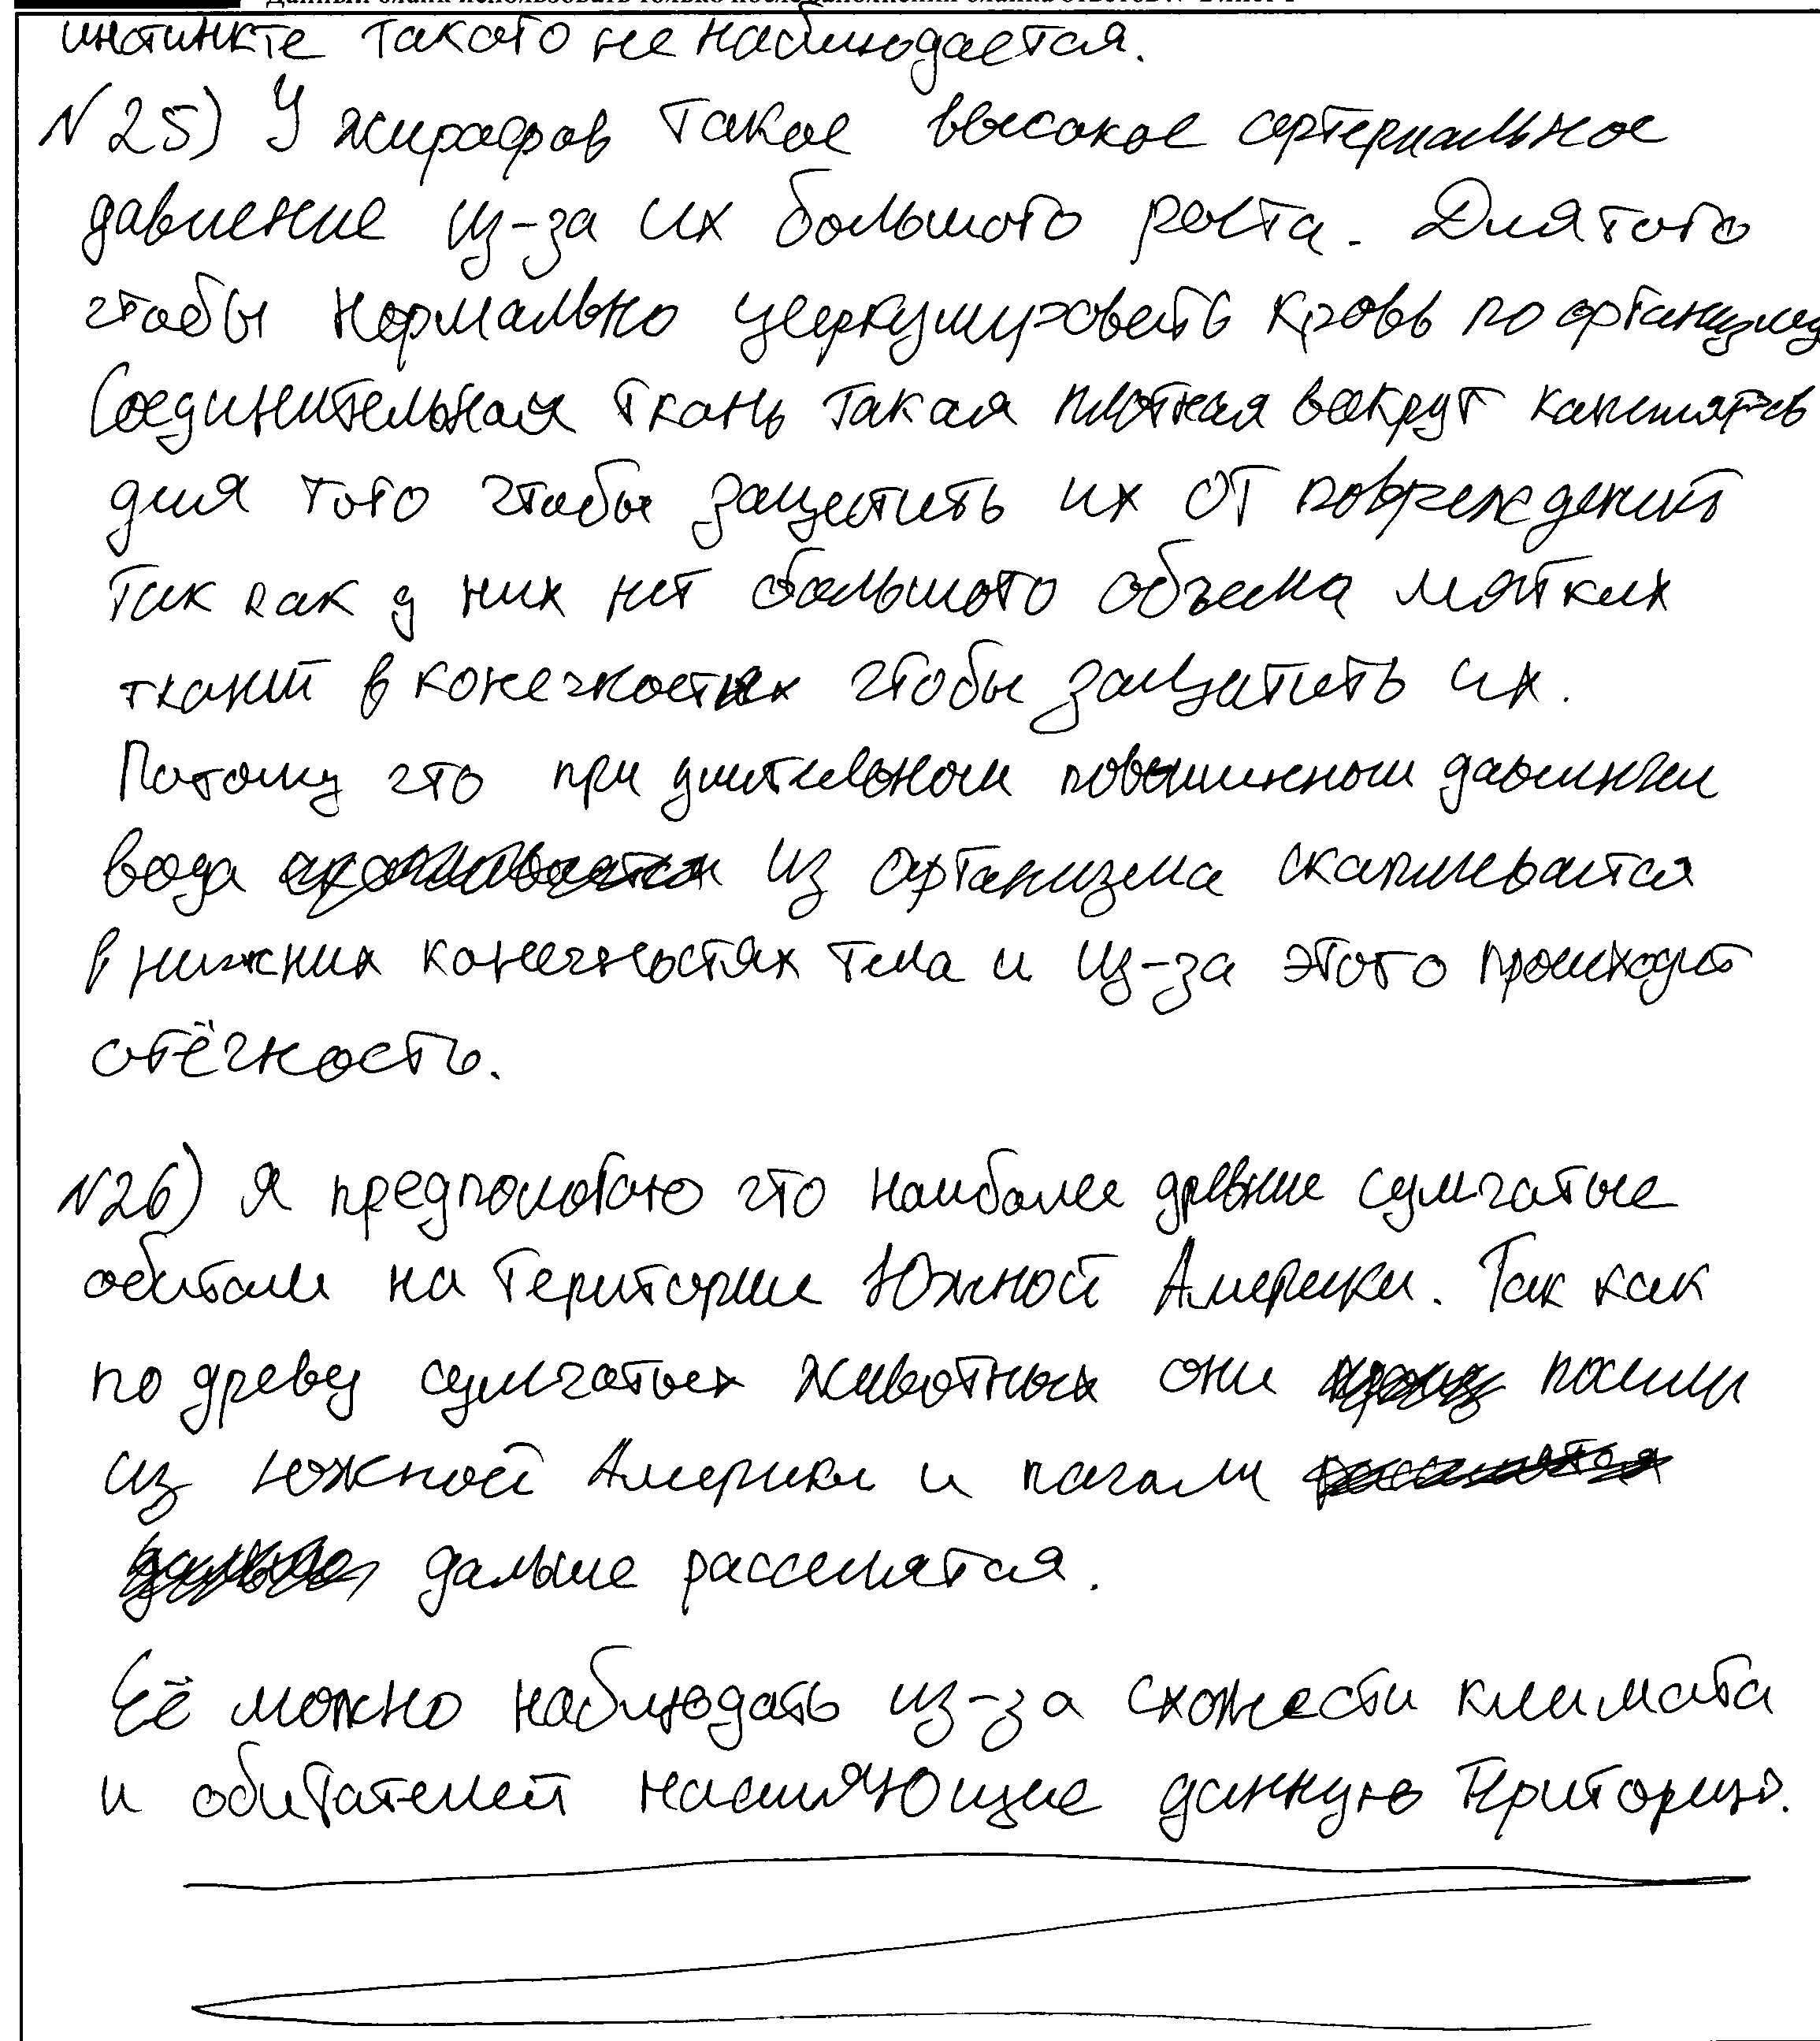 инстинкте такого не наблюдается.
№25) У жирафов такое высокое артериальное
давление из-за их большого роста. Для того
чтобы нормально циркулировать кровь по организму
Соединительная ткань такая плотная вокруг капиляров
для того чтобы защитить их от повреждений
так как у них нет большого объема мягких
тканий в конечностях чтобы защитить их.
Потому что при длительном повышенном давлении
вода из организма скапливается
в нижних конечностях тела и из-за этого происходит
отёчность.
№26) Я предпологаю что наиболее древние сумчатые
обитали на територии Южной Америки. Так как
по древу сумчатых животных они пошли
из южной Америки и начали
дальше расселятся.
Её можно наблюдать из-за схожести климата
и обитателей населяющие данную територию.